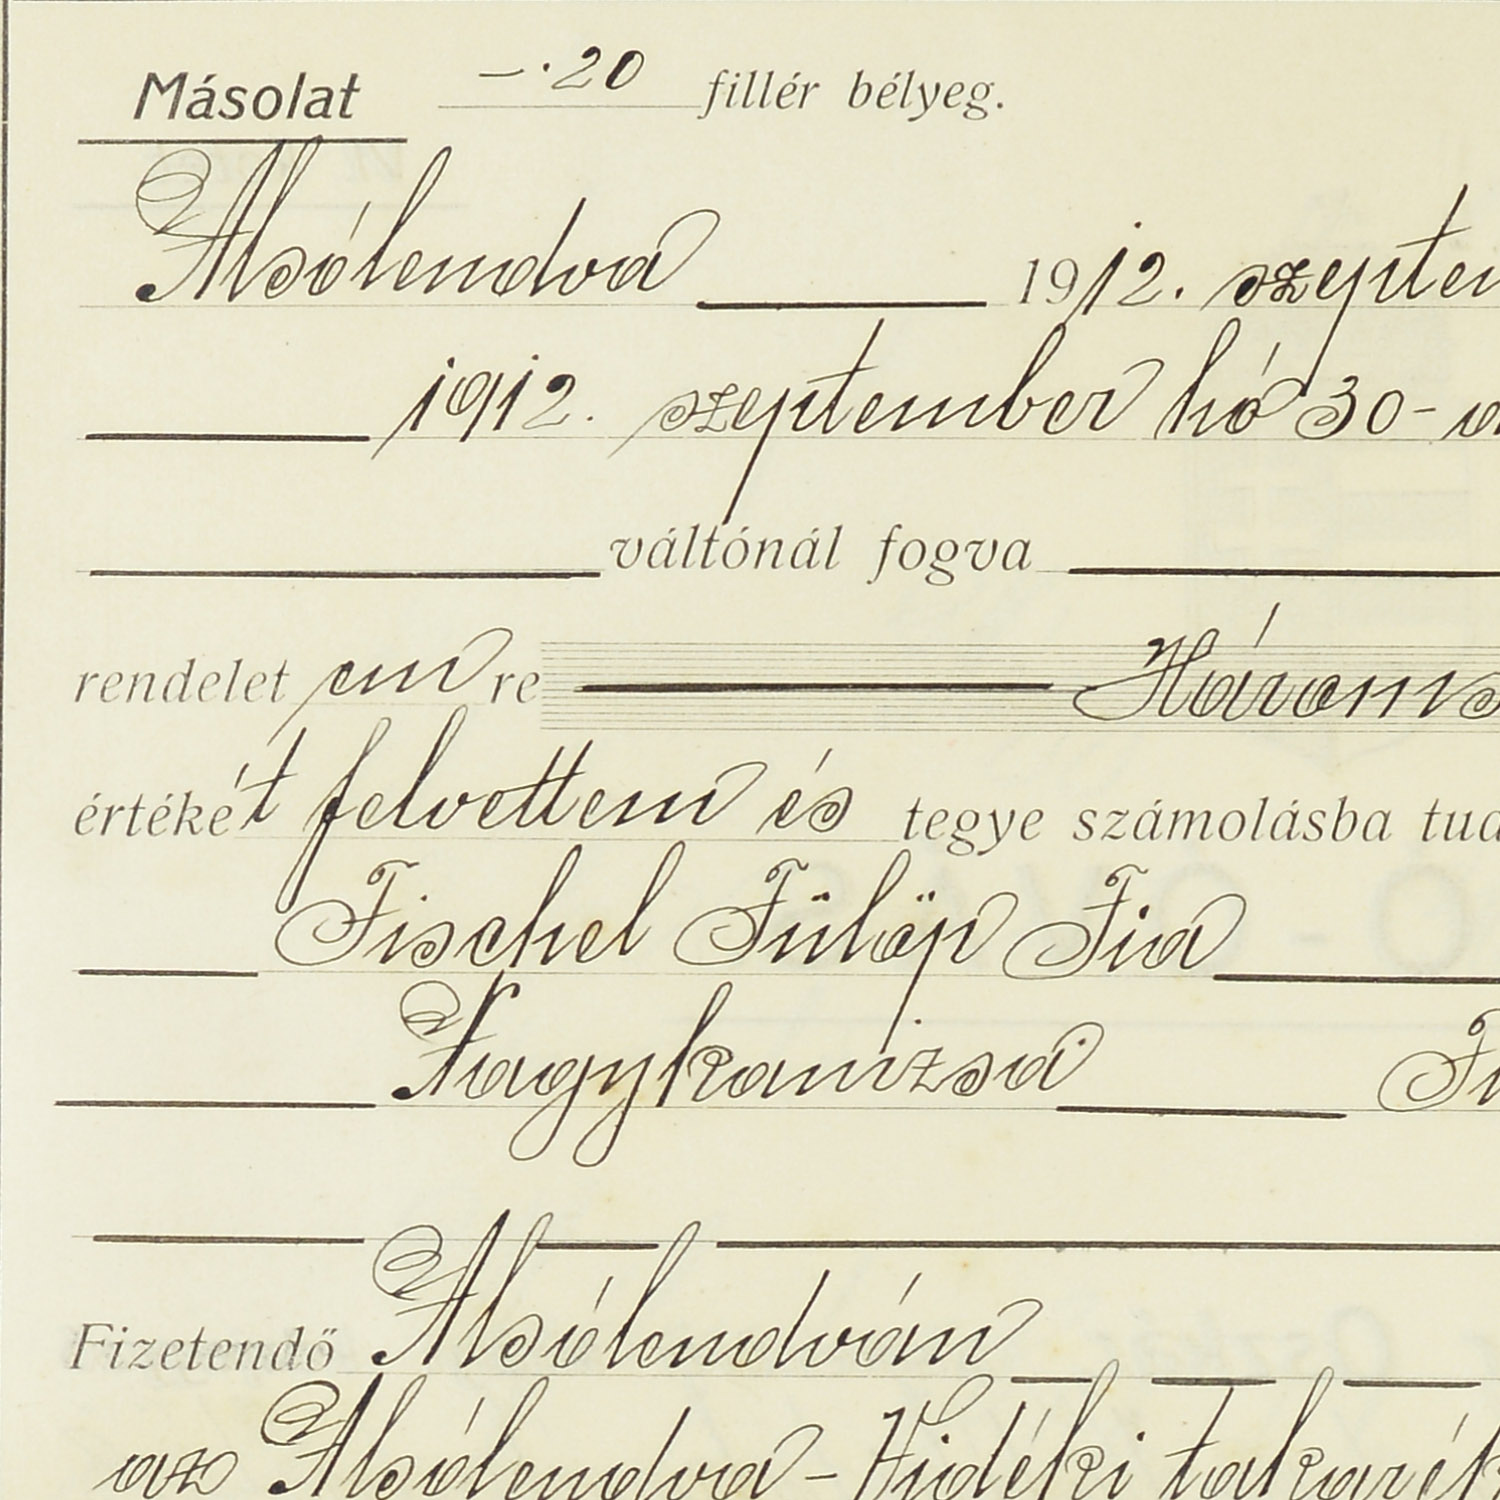 Másolat –·20 fillér bélyeg.
Alsólendva 1912. szeptem
1912. szeptember hó 30-á
váltónál fogva
rendelet em re Három s
értékét felvettem és tegye számolásba tud
Fischel Fülöp Fia
Nagykanizsa
Fizetendő Alsólendván
az Alsólendva-Vidéki takarék